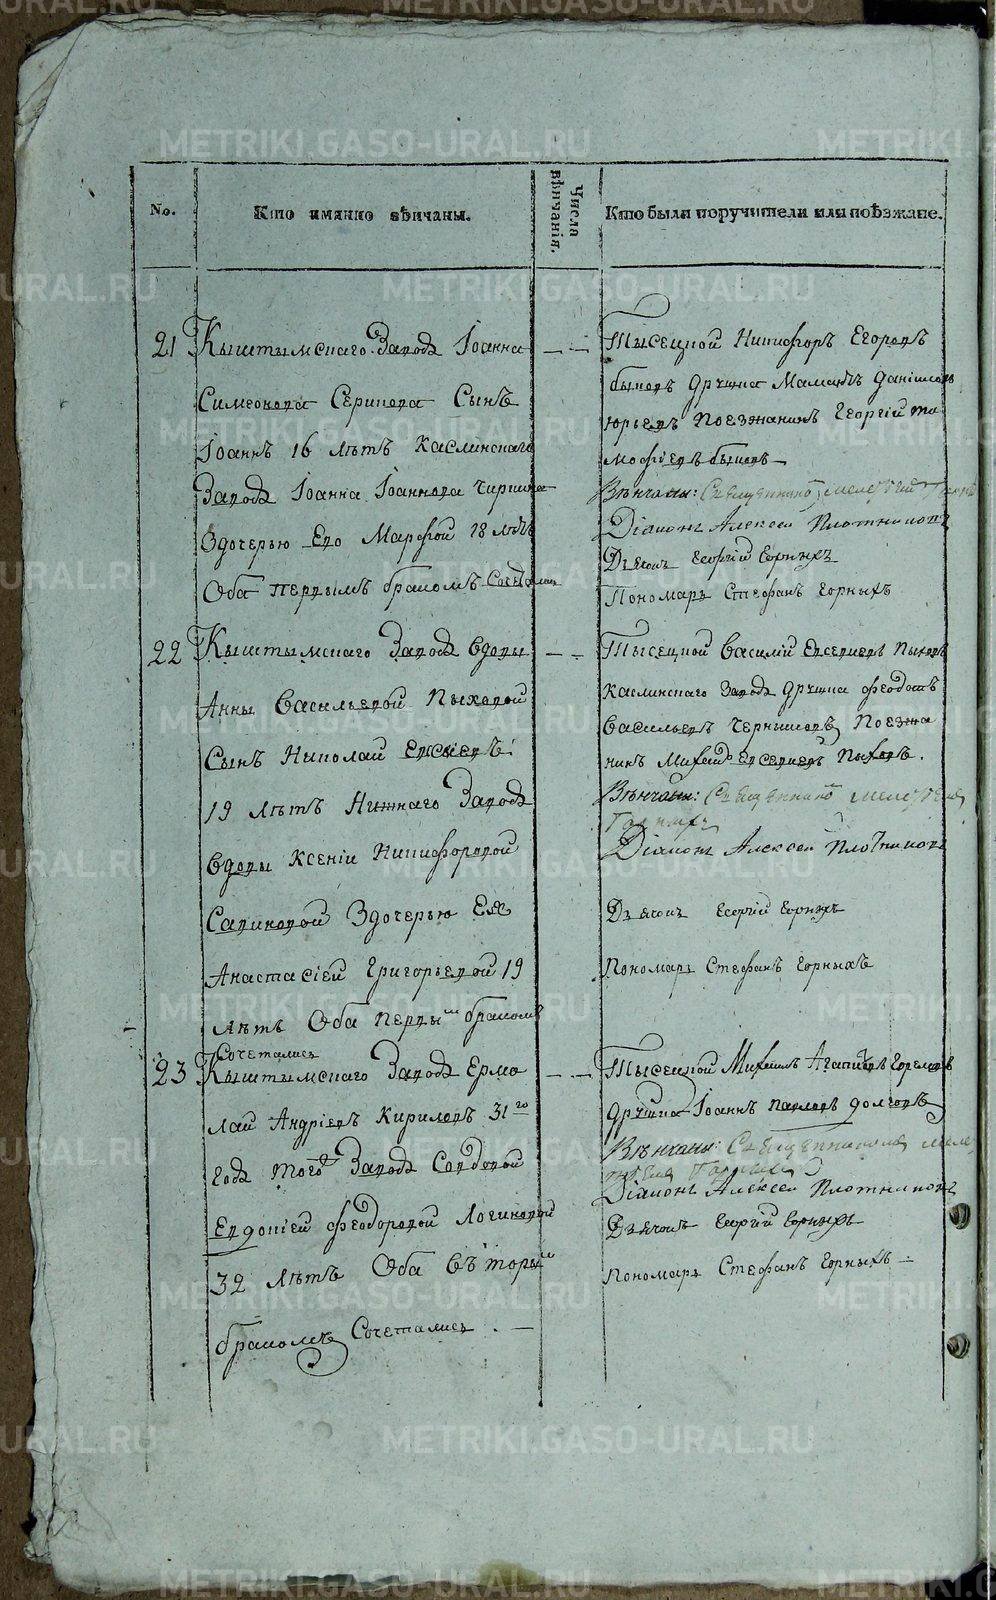 No.
Кто имянно вѣнчаны.
Числа
вѣнчанія.
Кто были поручители или поѣзжане.
21
Кыштымскаго Завода Іоанна
Симеонова Серикова Сынъ
Іоаннъ 16 лѣтъ Каслинскаго
Завода Іоанна Іоаннова
Здочерью Его Марфой 18 лѣтъ
Оба первымъ бракомъ Сочетались
Тысецкой Никифоръ Егоровъ
быковъ дружка Данілов
юрьевъ Поезжанинъ Георгій ти
мофѣевъ быковъ
Вѣнчаны: Священникъ
Діаконъ Алексеи Плотниковъ
Дьячокъ Георгій Горныхъ
Пономарь Стефанъ Горныхъ
22
Кыштымскаго Завода вдовы
Анны Васильевой Пыховой
Сынъ Николай Евсѣевъ
19 лѣтъ Нижнаго Завода
вдовы Ксеніи Никифоровой
Савиновой Здочерью Ея
Анастасіей Григорьевой 19
лѣтъ Оба первым бракомъ
Сочетались
Тысецкой Василій Евсевіевъ Пыховъ
Каслинскаго Завода дружка Феодотъ
Васильевъ Чернышовъ Поезжа
нинъ Михаилъ Евсевіевъ Пыховъ.
Вѣнчаны: Священникъ
Горныхъ
Діаконъ Алексеи Плотниковъ
Дьячокъ Георгій Горныхъ
Пономарь Стефанъ Горныхъ
23
Кыштымскаго Завода Ермо
лай Андріевъ Кириловъ 31го
года того Завода Совдовой
Евдокіей Феодоровой Логиновой
32 лѣтъ Оба вторым
бракомъ Сочетались.
Тысецкой Михаилъ Агапитовъ
дружка Іоаннъ Павловъ долговъ
Вѣнчаны: Священникомъ
Діаконъ Алексеи Плотниковъ
Дьячокъ Георгій Горныхъ
Пономарь Стефанъ Горныхъ
METRIKI.GASO-URAL.RU